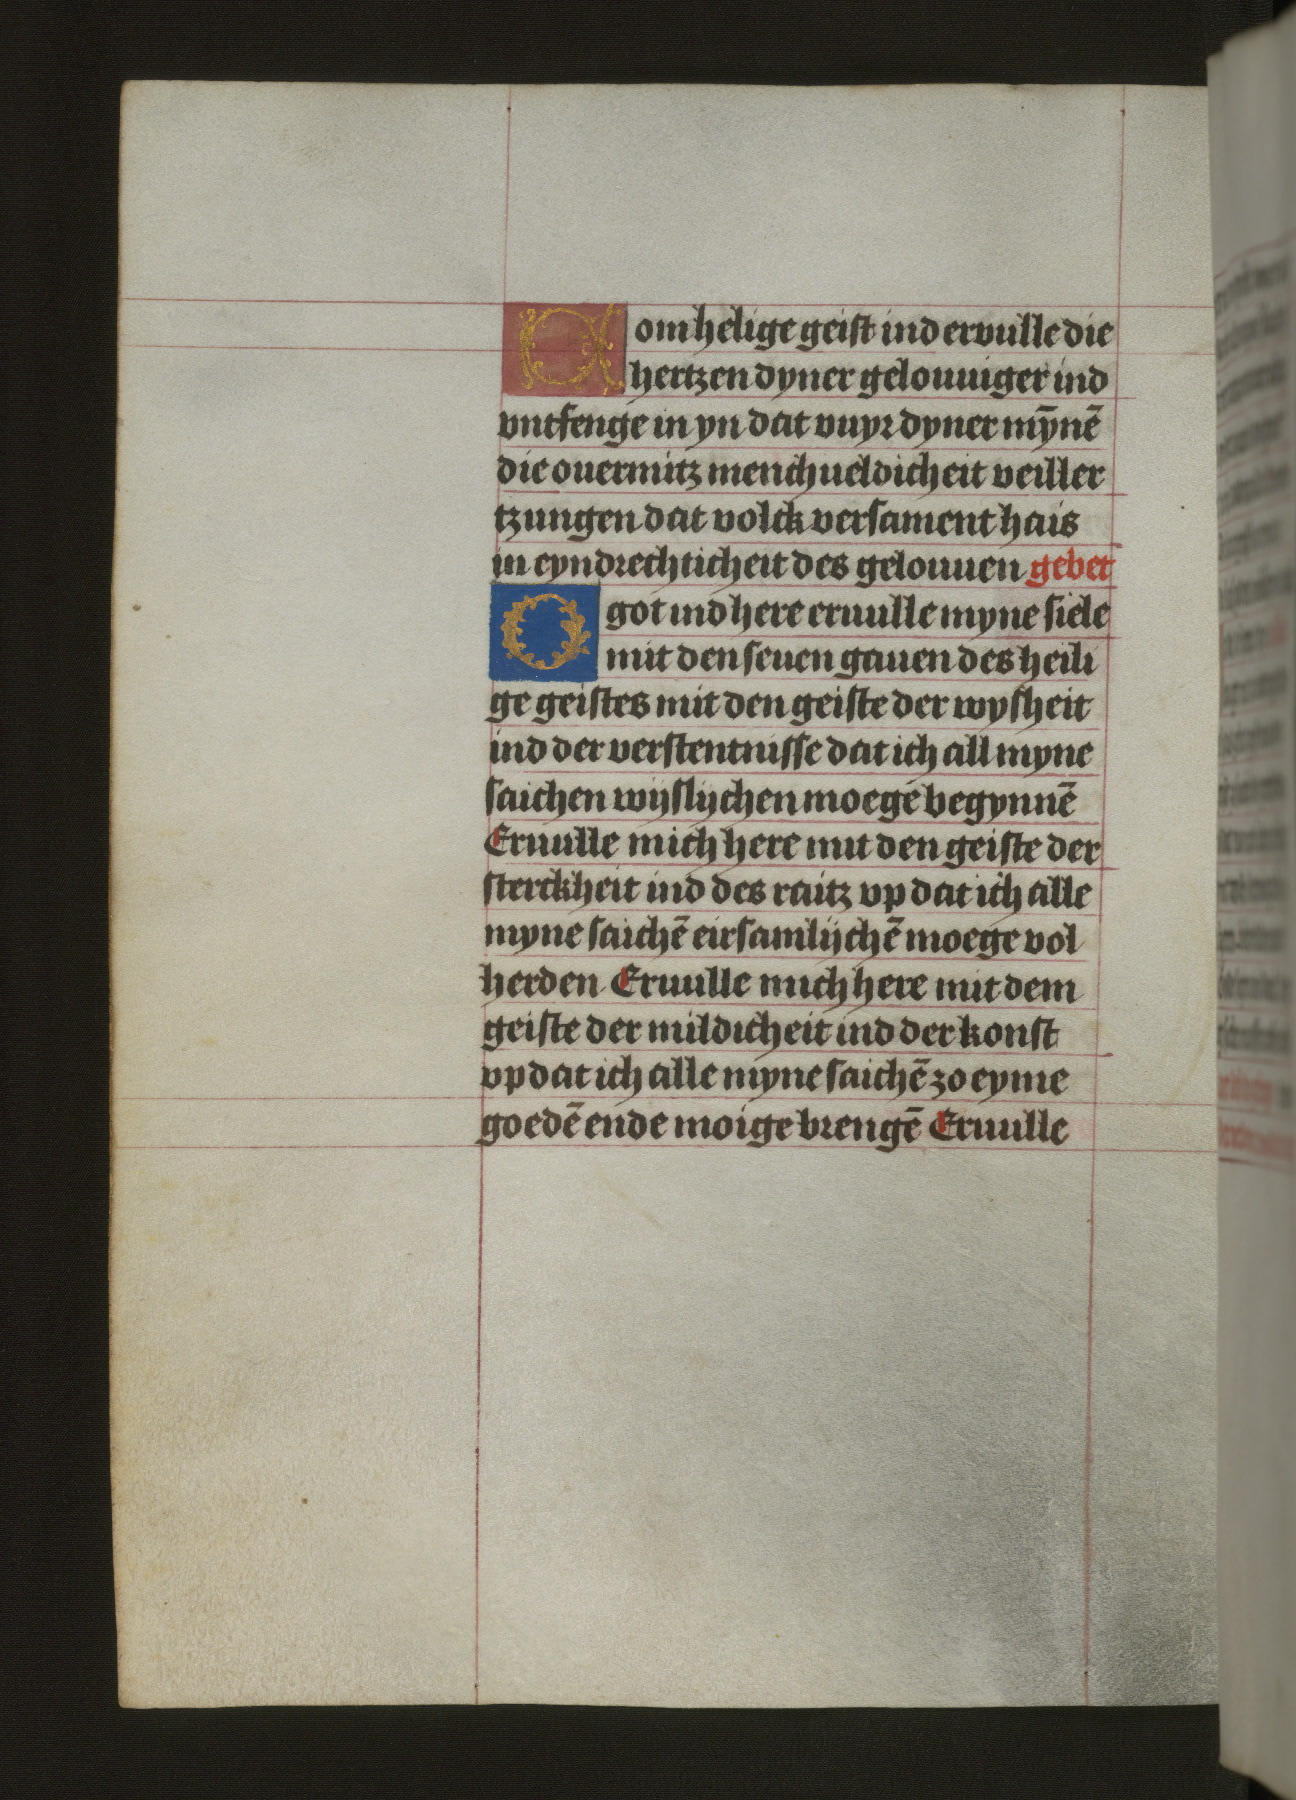 Com helige geist ind ervulle die
hertzen dyner gelouuiger ind
vntfenge in yn dat vuyr dyner mȳnē
die ouermitz menichueldicheit veiller
tzungen dat volck versament hais
in eyndrechticheit des gelouuen gebet
O got ind here eruulle myne siele
mit den seuen gauen des heili
ge geistes mit den geiste der wysheit
ind der verstentnisse dat ich all myne
saichen wijslijchen moegē begynnē
Eruulle mich here mit den geiste der
sterckheit ind des raitz vp dat ich alle
myne saichē eirsamlijchē moege vol
herden Eruulle mich here mit dem
geiste der mildicheit ind der konst
vp dat ich alle myne saichē zo eyme
goedē ende moige brengē Eruulle